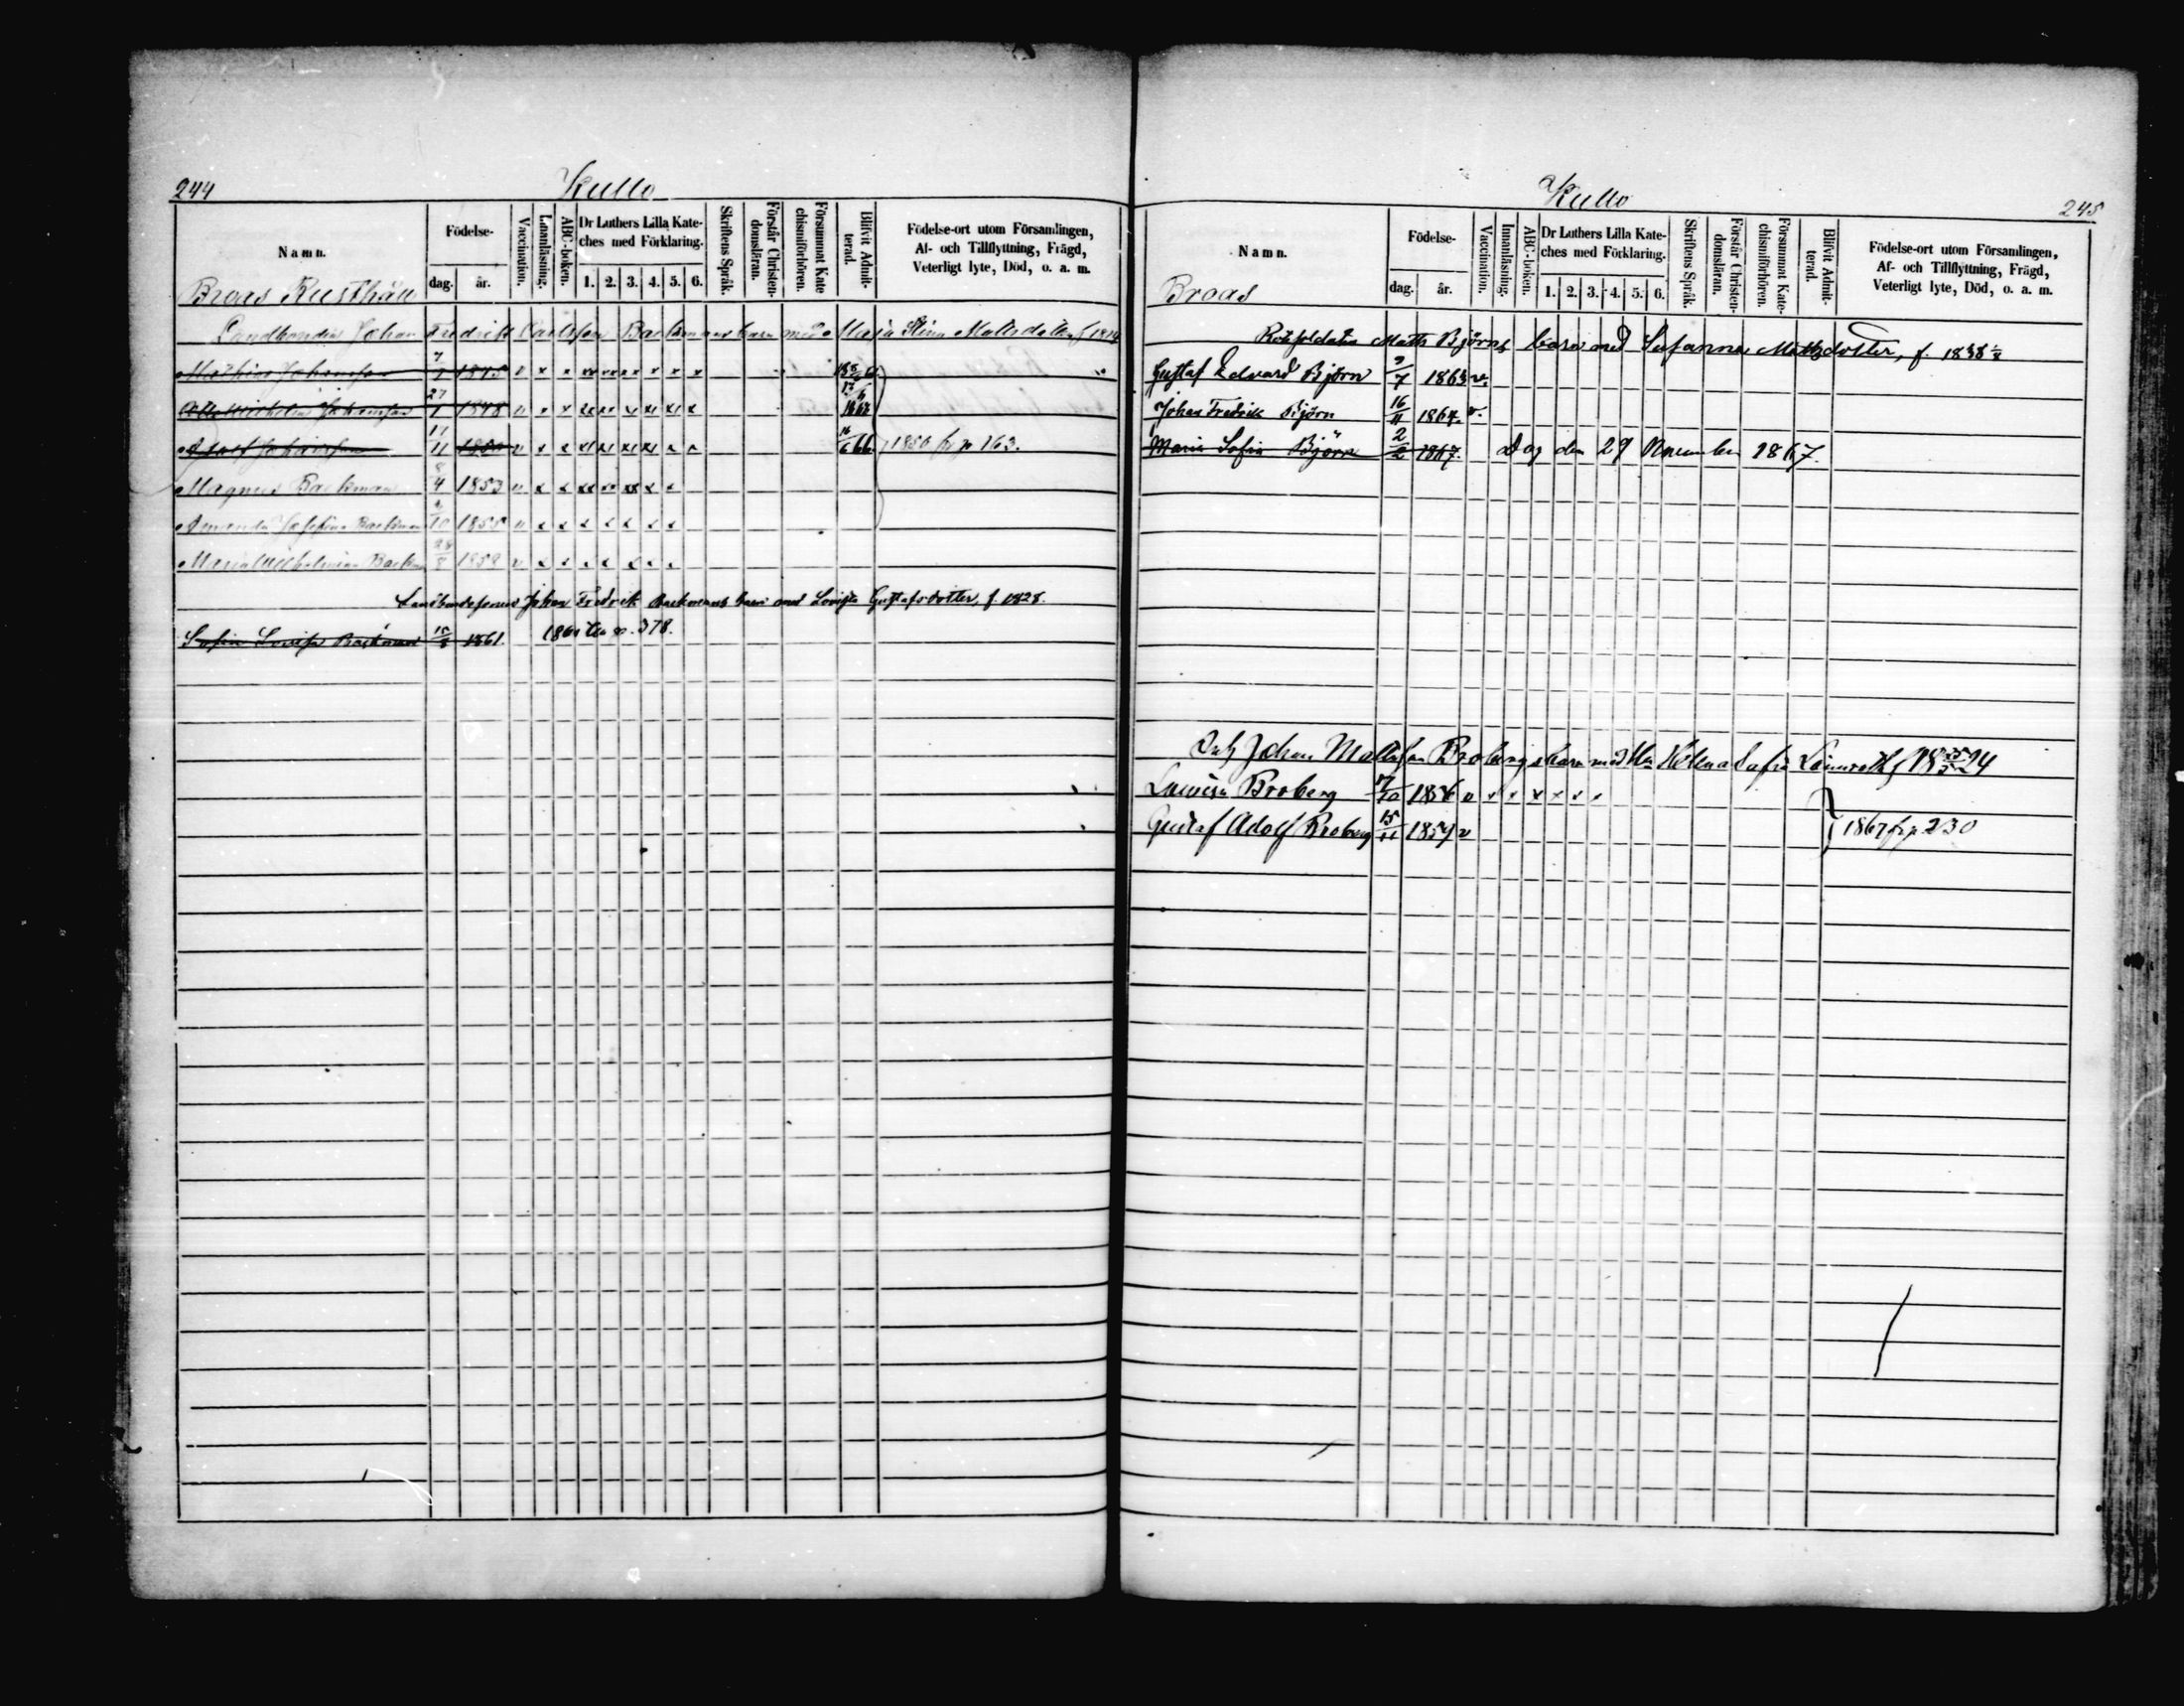 244
Kullo
Namn.
Födelse-
dag. år.
Vaccination.
Innanläsning.
ABC-boken.
Dr Luthers Lilla Kate-
ches med Förklaring.
1. 2. 3. 4. 5. 6.
Skriftens Språk.
Förstår Christen-
domsläran.
Försummat Kate
chismiförhören.
Blifvit Admit-
terad.
Födelse-ort utom Församlingen,
Af- och Tillflyttning, Frägd,
Veterligt lyte, Död, o. a. m.
Broas Rusthåll
Landbonden Johan Fredrik Carlsson Backmans barn med Maja Stina Mattsdotter f 1814
Mathias Johansson 1845 v x x
Johansson 27/1 1848 v x x
Adolf Johansson 17/11 1850 v x x 16/6 66 1850 fr p 163.
Magnus Backman 8/4 1853 v x x
Amanda Josefina Backman 1855 v x x
Maria Wilhelmina Backm 28/8 1859 v x x
Landbondesonen Johan Fredrik Backmans barn med Lovisa Gustafsdotter, f. 1828.
Sofia Lovisa Backman 1861. p. 378.
245
Kullo
Namn.
Födelse-
dag. år.
Vaccination.
Innanläsning.
ABC-boken.
Dr Luthers Lilla Kate-
ches med Förklaring.
1. 2. 3. 4. 5. 6.
Skriftens Språk.
Förstår Christen-
domsläran.
Försummat Kate-
chismiförhören.
Blifvit Admit-
terad.
Födelse-ort utom Församlingen,
Af- och Tillflyttning, Frägd,
Veterligt lyte, Död, o. a. m.
Broas
Rotesoldaten Matts Björns barn med Susanna Mattsdotter, f. 1838
Gustaf Edvard Björn 9/7 1863 v.
Johan Fredrik Björn 16/11 1864 v.
Maria Sofia Björn 2/2 1867. Dog den 29 November 1867.
Johan Mattsson Brobergs barn med Helena Sofia Lönnroth f 18 24
Lowisa Broberg 1856 v x x x x x x
Gustaf Adolf Broberg 15/11 1859 v 1867 fr p 230